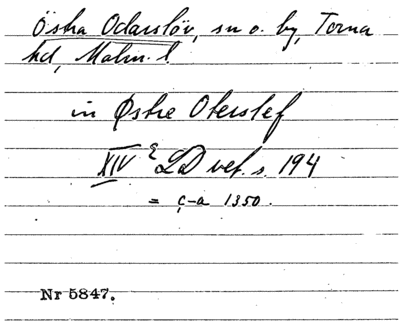 Östra Odarslöv, sn o. by, Torna
hd, Malm. l.
in Østre Oterslef
XIV 2 LD vet. s. 194
= c-a 1350.
Nr 5847.